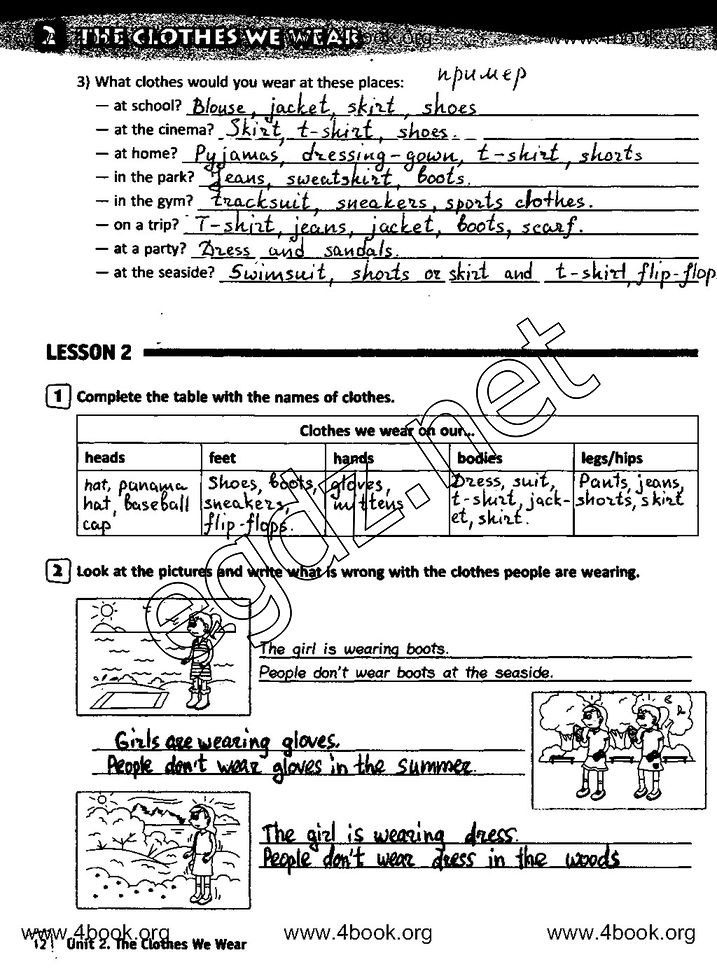 2 THE CLOTHES WE WEAR
www.4book.org
3) What clothes would you wear at these places: пример
— at school? Blouse, jacket, skirt, shoes
— at the cinema? Skirt, t-shirt, shoes.
— at home? Pyjamas, dressing-gown, t-shirt, shorts
— in the park? Jeans, sweatshirt, boots.
— in the gym? tracksuit, sneakers, sports clothes.
— on a trip? T-shirt, jeans, jacket, boots, scarf.
— at a party? Dress and sandals.
— at the seaside? Swimsuit, shorts or skirt and t-shirt, flip-flop
LESSON 2
1 Complete the table with the names of clothes.
Clothes we wear on our...
heads feet hands bodies legs/hips
hat, panama Shoes, boots, gloves, Dress, suit, Pants, jeans,
hat, baseball sneakers, mittens t-shirt, jack- shorts, skirt
cap flip-flops. et, shirt.
egdz.net
2 Look at the pictures and write what is wrong with the clothes people are wearing.
The girl is wearing boots.
People don't wear boots at the seaside.
Girls are wearing gloves.
People don't wear gloves in the summer
The girl is wearing dress.
People don't wear dress in the woods
www.4book.org www.4book.org www.4book.org
12 Unit 2. The Clothes We Wear